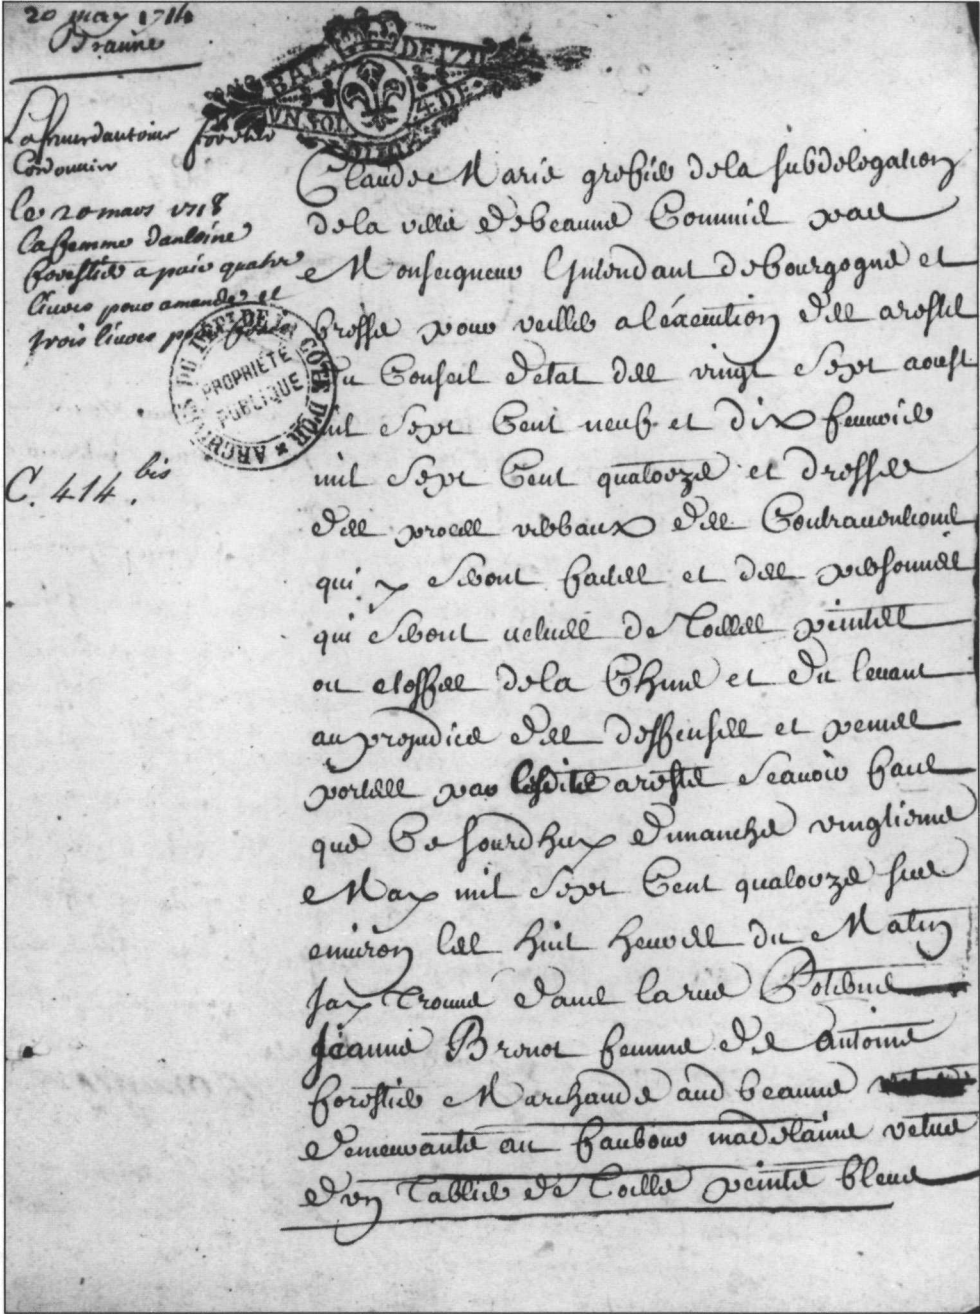 20 may 1714
Beaune
La femme dantoine forestier
Cordonnier
le 20 mars 1718
la femme dantoine
forestier a paié quatre
livres pour amande et
trois livres pour
BAI DEIZU
VN SOL 4 DE
ARCHIVES DU DEPT DE LA COTE D'OR
PROPRIÉTÉ
PUBLIQUE
C. 414 bis
Claude Marie grefier de la subdelegation
de la ville de beaune Commis par
Monseigneur Lintendant de bourgogne et
bresse pour veiller a lexécution des arestes
du Conseil destat des vingt sept aoust
mil sept Cent neuf et dix fevrier
mil sept Cent quatorze et dresser
des proces verbaux des Contraventions
qui y seront faites et des personnes
qui seront vetues de toilles peintes
ou etoffes de la Chine et du levant
au prejudice des deffenses et peines
portees par lesdits arestes scavoir faire
que Ce jourdhuy dimanche vingtieme
May mil sept Cent quatorze sur
environ les huit heures du Matin
jay trouvé dans la rue
jeanne Brenot femme de antoine
forestier Marchande aud beaune
demeurante au faubour madelaine vetue
dun tablier de toille peinte bleue